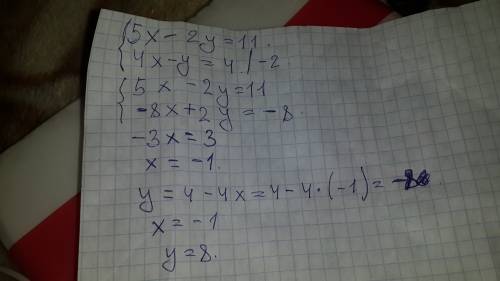 5x - 2y = 11.
4x - y = 4 / -2
5x - 2y = 11
-8x + 2y = -8.
-3x = 3
x = -1.
y = 4 - 4x = 4 - 4·(-1) =
x = -1
y = 8.